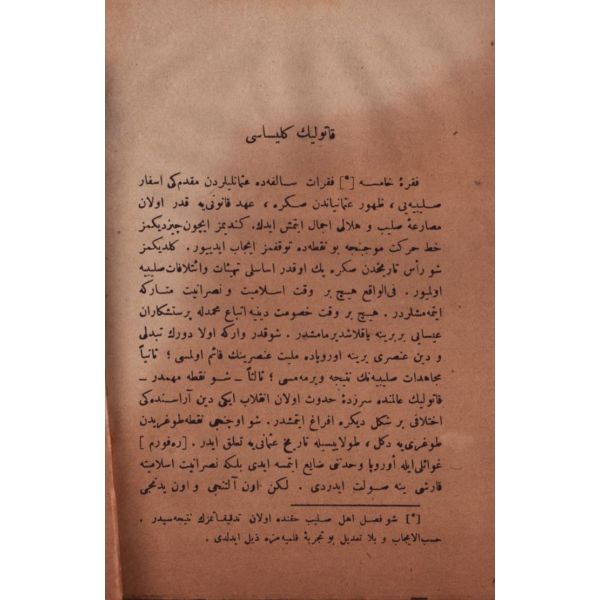 قاتولیك كلیساسی
فقرۀ خامسه [*] فقرات سالفه‌ده عثمانلیلردن مقدم‌كی اسفار
صلیبیه‌یی ، ظهور عثمانیاندن صكره ، عهد قانونی‌یه قدر اولان
مصارعۀ صلیب و هلالی اجمال ایتمش ایدك. كندیمز ایچون چیزدیكمز
خط حركت موجنجه بو نقطه‌ده توقفمز ایجاب ایدییور. كلدیكمز
شو رأس تاریخدن صكره پك اوقدر اساسلی تهیئات وائتلافات صلیبیه
اولمیور. فی‌الواقع هیچ بر وقت اسلامیت و نصرانیت متاركه
ایتمه‌مشلردر. هیچ بر وقت خصومت دینیه اتباع محمدله پرستشكاران
عیسایی بربرینه یاقلاشدیرمامشدر. شوقدر واركه اولا دورك تبدلی
و دین عنصری یرینه اوروپاده ملیت عنصرینك قائم اولمسی ؛ ثانیاً
مجاهدات صلیبیه‌نك نتیجه ویرمه‌مسی ؛ ثالثاً ــ شو نقطه مهمدر ــ
قاتولیك عالمنده سرزدۀ حدوث اولان انقلاب ایكی دین آراسنده‌كی
اختلافی بر شكل دیكره افراغ ایتمشدر. شو اوچنجی نقطه طوغریدن
طوغری‌یه دكل ، طولاییسیله تاریخ عثمانی‌یه تعلق ایدر. [ره‌فورم]
غوائلی‌ایله أوروپا وحدتنی ضایع ایتمسه ایدی بلكه نصرانیت اسلامیته
قارشی ینه صولت ایدردی . لكن اون آلتنجی و اون یدنجی
[*] شو فصل اهل صلیب حقنده اولان تدقیقاتمزك نتیجه‌سیدر .
حسب‌الایجاب و بلا تعدیل بو تجربۀ قلمیه‌مزه ذیل ایدلدی .